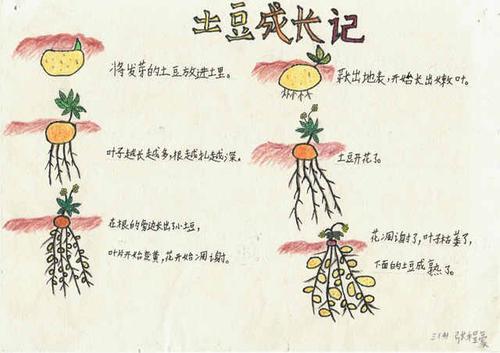 土豆成长记
将发芽的土豆放进土里。
钻出地表,开始长出嫩叶。
叶子越长越多,根越扎越深。
土豆开花了。
在根的旁边长出了小土豆,
叶片开始变黄,花开始凋谢。
花凋谢了,叶子枯萎了,
下面的土豆成熟了。